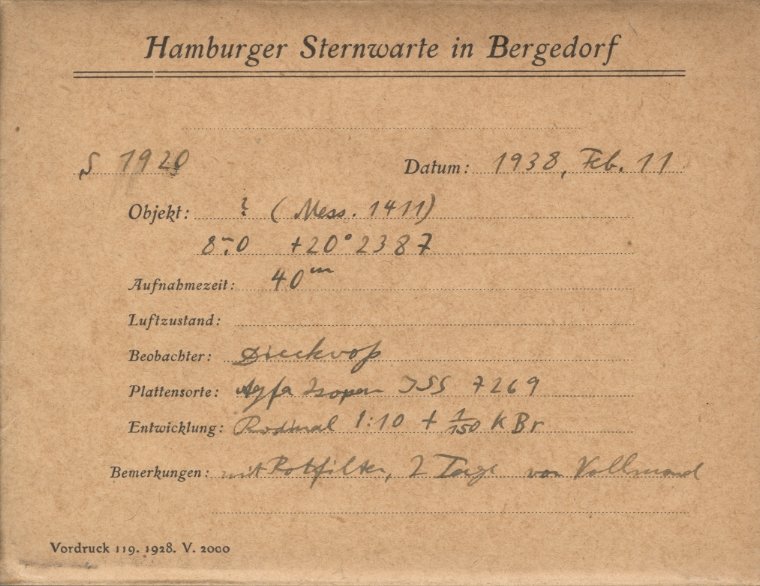 Hamburger Sternwarte in Bergedorf
S 1920
Datum: 1938, Feb. 11
Objekt: ? (Mess. 1411)
8ᵐ.0 +20° 2387
Aufnahmezeit: 40ᵐ
Luftzustand:
Beobachter: Dieckvoß
Plattensorte: Agfa Isopan ISS 7269
Entwicklung: Rodinal 1:10 + 1/150 KBr
Bemerkungen: mit Rotfilter, 2 Tage vor Vollmond
Vordruck 119. 1928. V. 2000